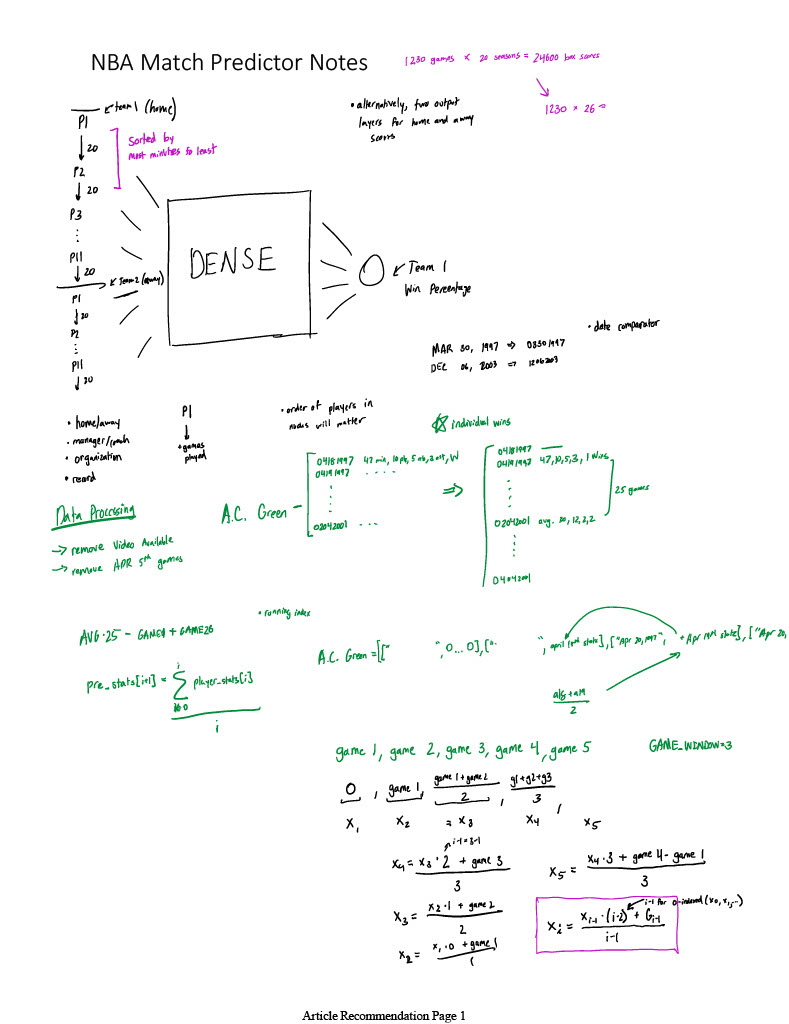 NBA Match Predictor Notes
1230 games × 20 seasons = 24600 box scores
1230 × 26 =
team 1 (home)
P1
20
P2
20
P3
P11
20
Sorted by
most minutes to least
Team 2 (away)
P1
20
P2
P11
20
DENSE
Team 1
Win Percentage
• alternatively, two output
layers for home and away
scores
• date comparator
MAR 30, 1997 => 03301997
DEC 06, 2003 => 12062003
• home/away
• manager/coach
• organization
• record
P1
+games
played
• order of players in
nodes will matter
individual wins
Data Processing
-> remove Video Available
-> remove APR 5th games
A.C. Green -
04181997 47 min, 10 pts, 5 reb, 2 ast, W
04191997 . . . .
02042001 . . .
=>
04181997
04191997 47, 10, 5, 3, 1 Wins
02042001 avg. 20, 12, 2, 2
04042001
25 games
• running index
AVG·25 - GAME1 + GAME26
pre_stats[i+1] = i ∑ i=0 player_stats[i]
i
A.C. Green = [["
", 0...0], ["
", april 18th stats], ["Apr 20, 1997", + Apr 19th stats], ["Apr 20,
a18 + a19
2
game 1, game 2, game 3, game 4, game 5
GAME_WINDOW=3
0 , game 1, game 1 + game 2 / 2 , g1+g2+g3 / 3 ,
x₁ x₂ = x₃ x₄ x₅
i-1 = 3-1
x₄ = x₃ · 2 + game 3 / 3
x₅ = x₄ · 3 + game 4 - game 1 / 3
x₃ = x₂ · 1 + game 2 / 2
x₂ = x₁ · 0 + game 1 / 1
i-1 for 0-indexed (x0, x1, ..)
xᵢ = xᵢ₋₁ · (i-2) + Gᵢ₋₁ / i-1
Article Recommendation Page 1